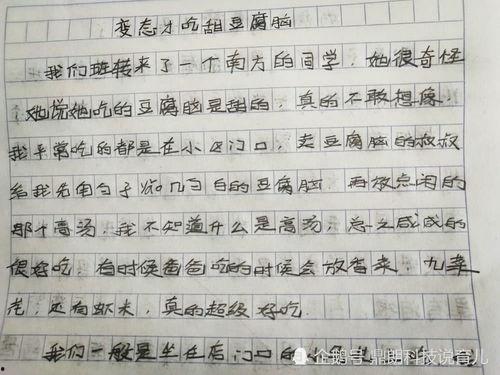 变态才吃甜豆腐脑
我们班转来了一个南方的同学,她很奇怪
她说她吃的豆腐脑是甜的,真的不敢想像
我平常吃的都是在小区门口,卖豆腐脑的叔叔
给我先用勺子 几勺白白的豆腐脑,再放点闲的
那个高汤,我不知道什么是高汤,总之咸咸的
很好吃,有时候爸爸吃的时候会放香菜,九菜
花,还有虾米,真的超级好吃.
我们一般是坐在店门口的小
企鹅号 鼎朗科技说育儿